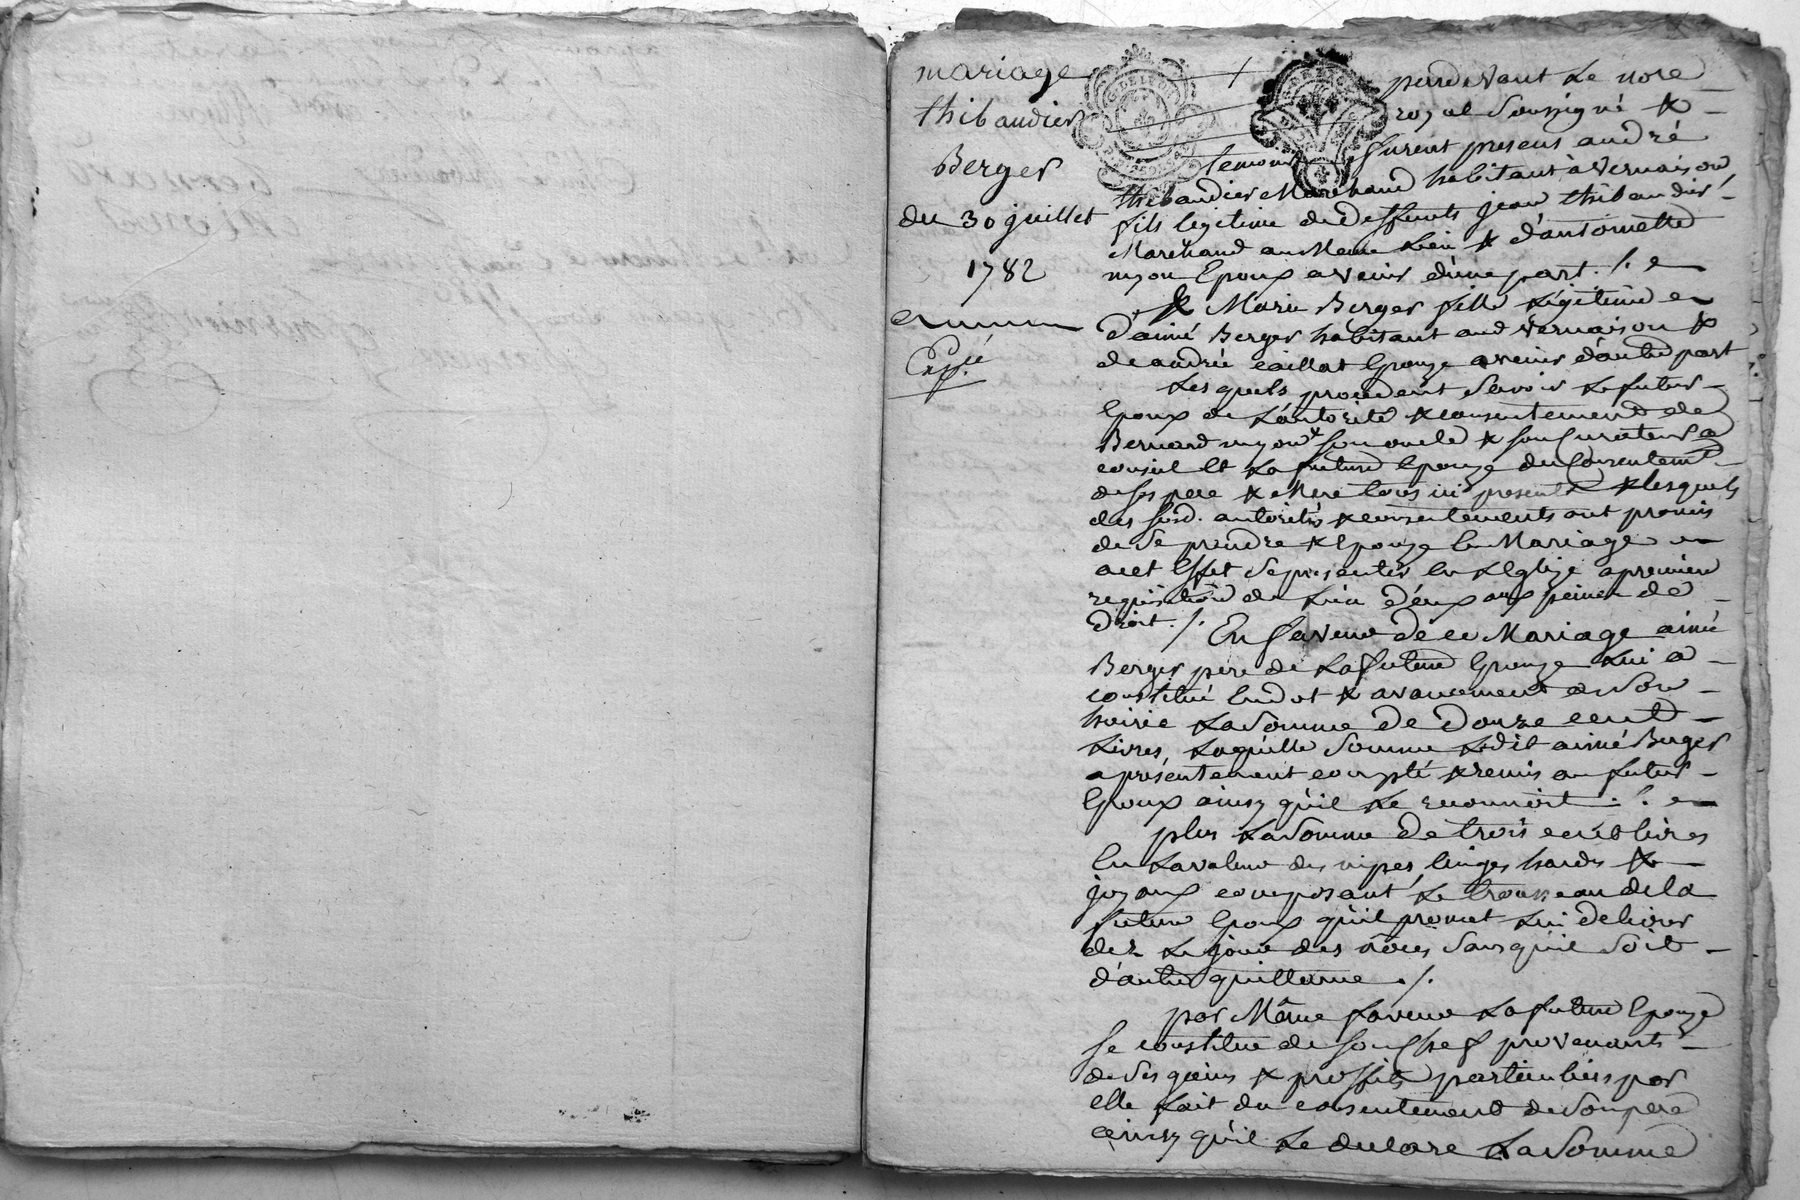 mariage
thibaudier
Berger
du 30 juillet
1782
Expié
pardevant Le nore
royal Soussigné &
temoins furent presens andré
thibaudier Marchand habitant à vernaison
fils legitime de deffunts jean thibaudier
Marchand au Meme Lieu & d'antoinette
Epoux avenir d'une part ./. e
& Marie Berger fille Légitime
d'aimé Berger habitant aud vernaison &
de andrée caillat Epouze avenir d'autre part
Lesquels procedent Savoir Le futur
Epoux de L'autorité & consentement de
Bernard son oncle & son Curateur a
conseil Et La future Epouze du Consentemt
de ses pere & Mere tous ici presents & lesquels
des susd. autorités & consentements ont promis
de se prendre & Epouze En Mariage
acet Effet se presenter En L'Eglize a premiere
requisition de L'un d'eux aux peines de
Droit ./. En faveur de ce Mariage aimé
Berger pere de La future Epouze Lui a
constitué En dot & avancement de son
hoirie La Somme de Douze cent
Livres, Laquelle Somme Ledit aimé Berger
a présentement compté & remis au futur
Epoux ainsy qu'il Le reconnoit ./.
plus La Somme De trois cent livres
En La valeur des nipes, linges, hardes &
joyaux composant Le trousseau de la
future Epoux qu'il promet Lui delivrer
dez Le jour des nôces Sans qu'il soit
d'autre quittance ./.
par Même faveur La future Epouze
se constitue de son Chef provenants
de Ses gains & proffits particuliers par
elle fait du consentement de Son pere
ainsy qu'il Le declare La Somme